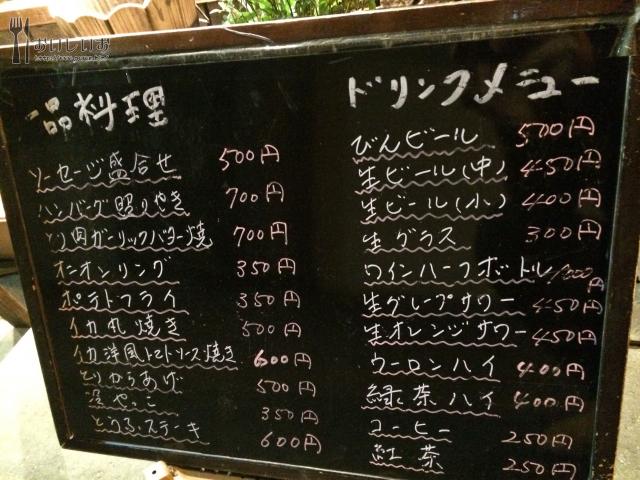 おいしいお
一品料理
ソーセージ盛合せ 500円
ハンバーグ照りやき 700円
とり肉ガーリックバター焼 700円
オニオンリング 350円
ポテトフライ 350円
イカ丸焼き 500円
イカ洋風トマトソース焼き 600円
とりからあげ 500円
冷やっこ 350円
とろろステーキ 600円
ドリンクメニュー
びんビール 500円
生ビール(中) 450円
生ビール(小) 400円
生グラス 300円
ワインハーフボトル 1,000円
生グレープサワー 450円
生オレンジサワー 450円
ウーロンハイ 400円
緑茶ハイ 400円
コーヒー 250円
紅茶 250円